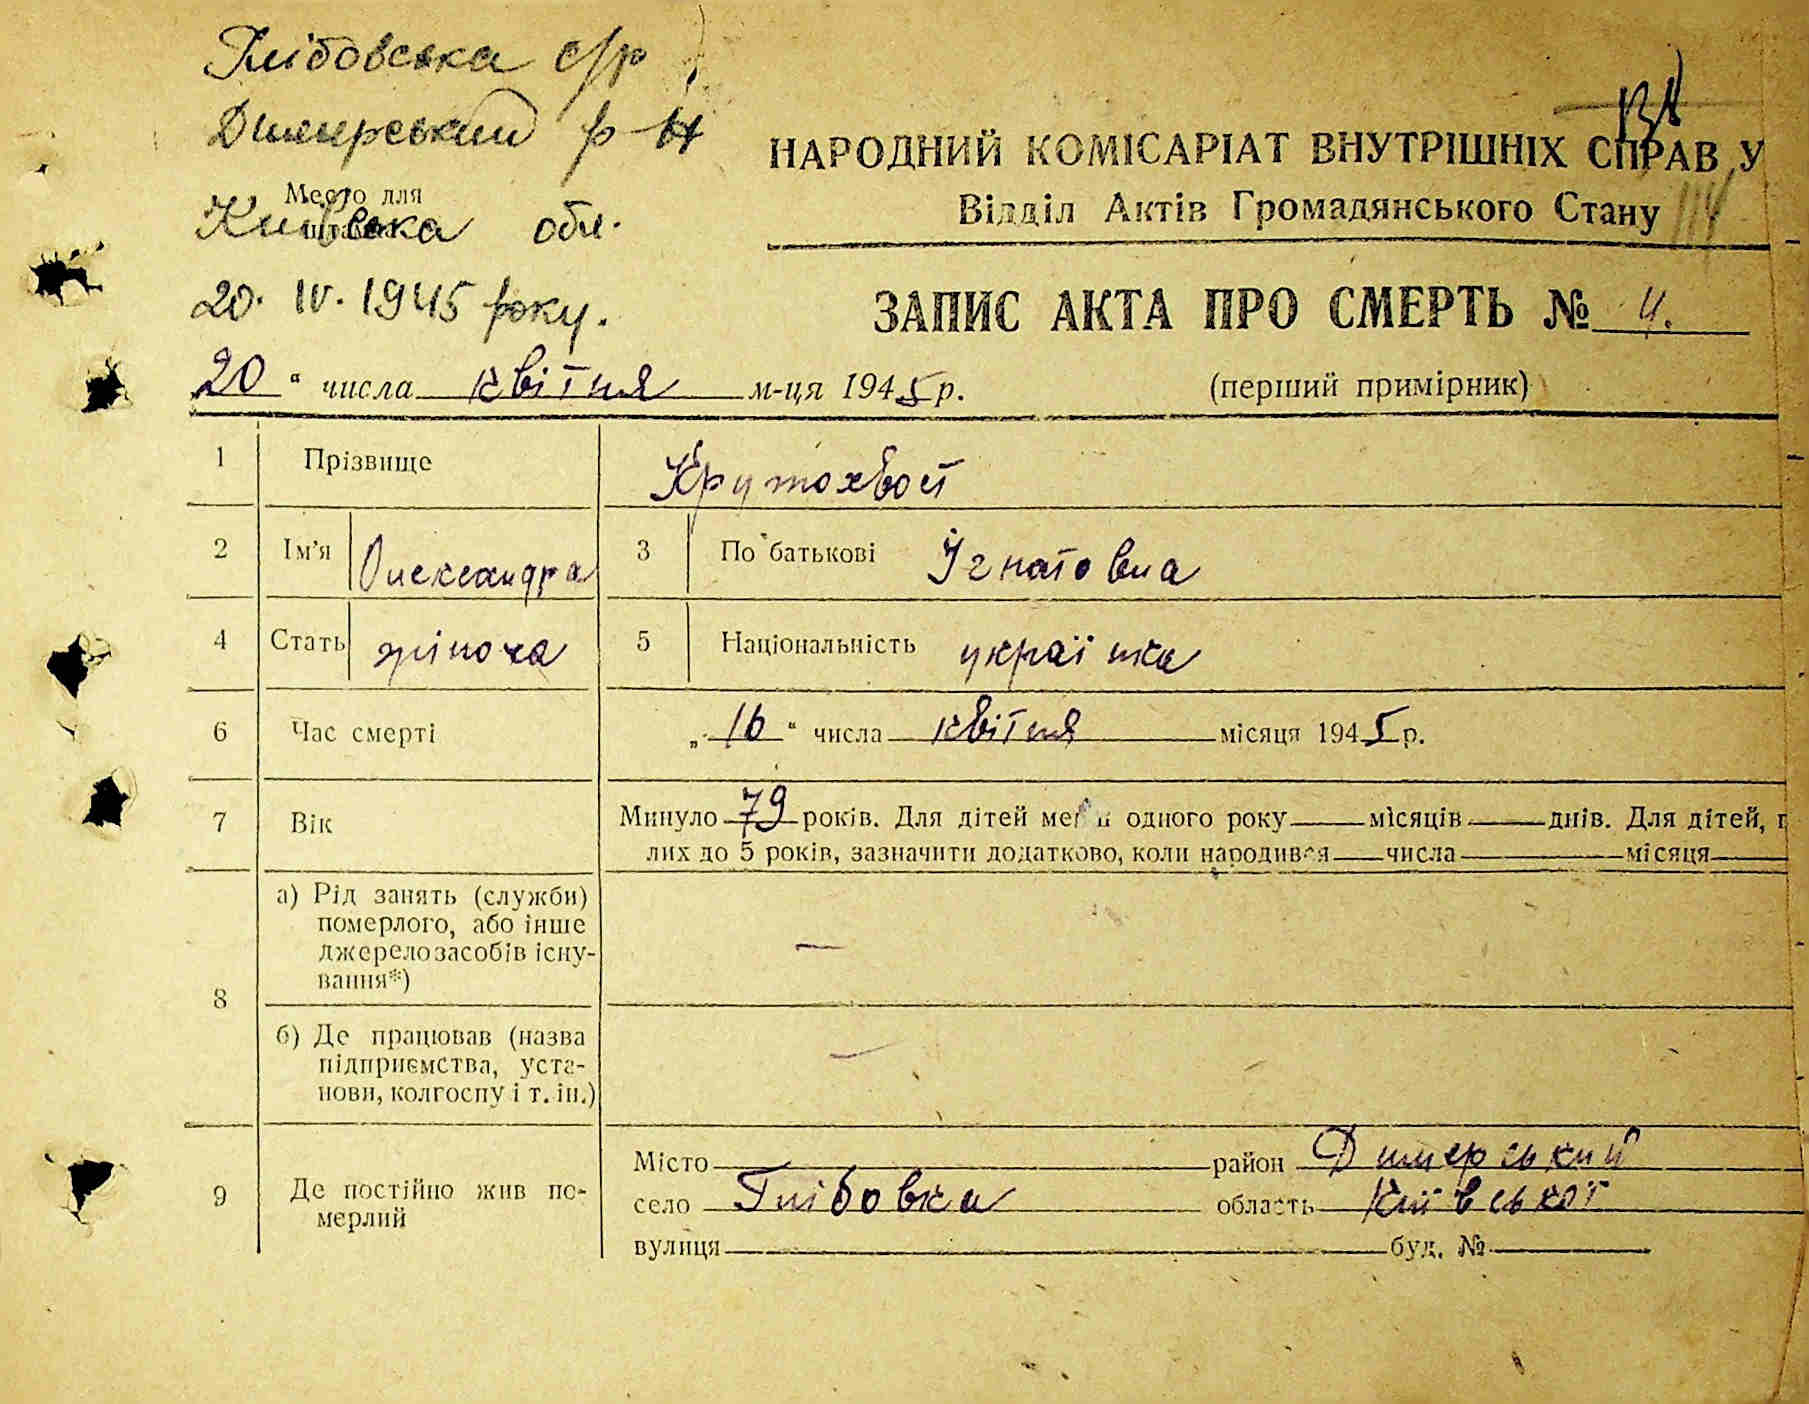 Глібовська с/р
Димерський р-н
Место для
Київська обл.
20. IV. 1945 року.
НАРОДНИЙ КОМІСАРІАТ ВНУТРІШНІХ СПРАВ У
Відділ Актів Громадянського Стану
114
ЗАПИС АКТА ПРО СМЕРТЬ № 4.
20 " числа квітня м-ця 1945 р.
(перший примірник)
1 Прізвище Крутохвост
2 Ім'я Олександра 3 По батькові Ігнатовна
4 Стать жіноча 5 Національність українка
6 Час смерті „ 16 " числа квітня місяця 1945 р.
7 Вік Минуло 79 років. Для дітей менш одного року місяців днів. Для дітей,
лих до 5 років, зазначити додатково, коли народився числа місяця
8 а) Рід занять (служби)
померлого, або інше
джерело засобів існу-
вання*) —
б) Де працював (назва
підприємства, уста-
нови, колгоспу і т. ін.) —
9 Де постійно жив по-
мерлий
Місто район Димерський
село Глібовка область Київської
вулиця буд. №